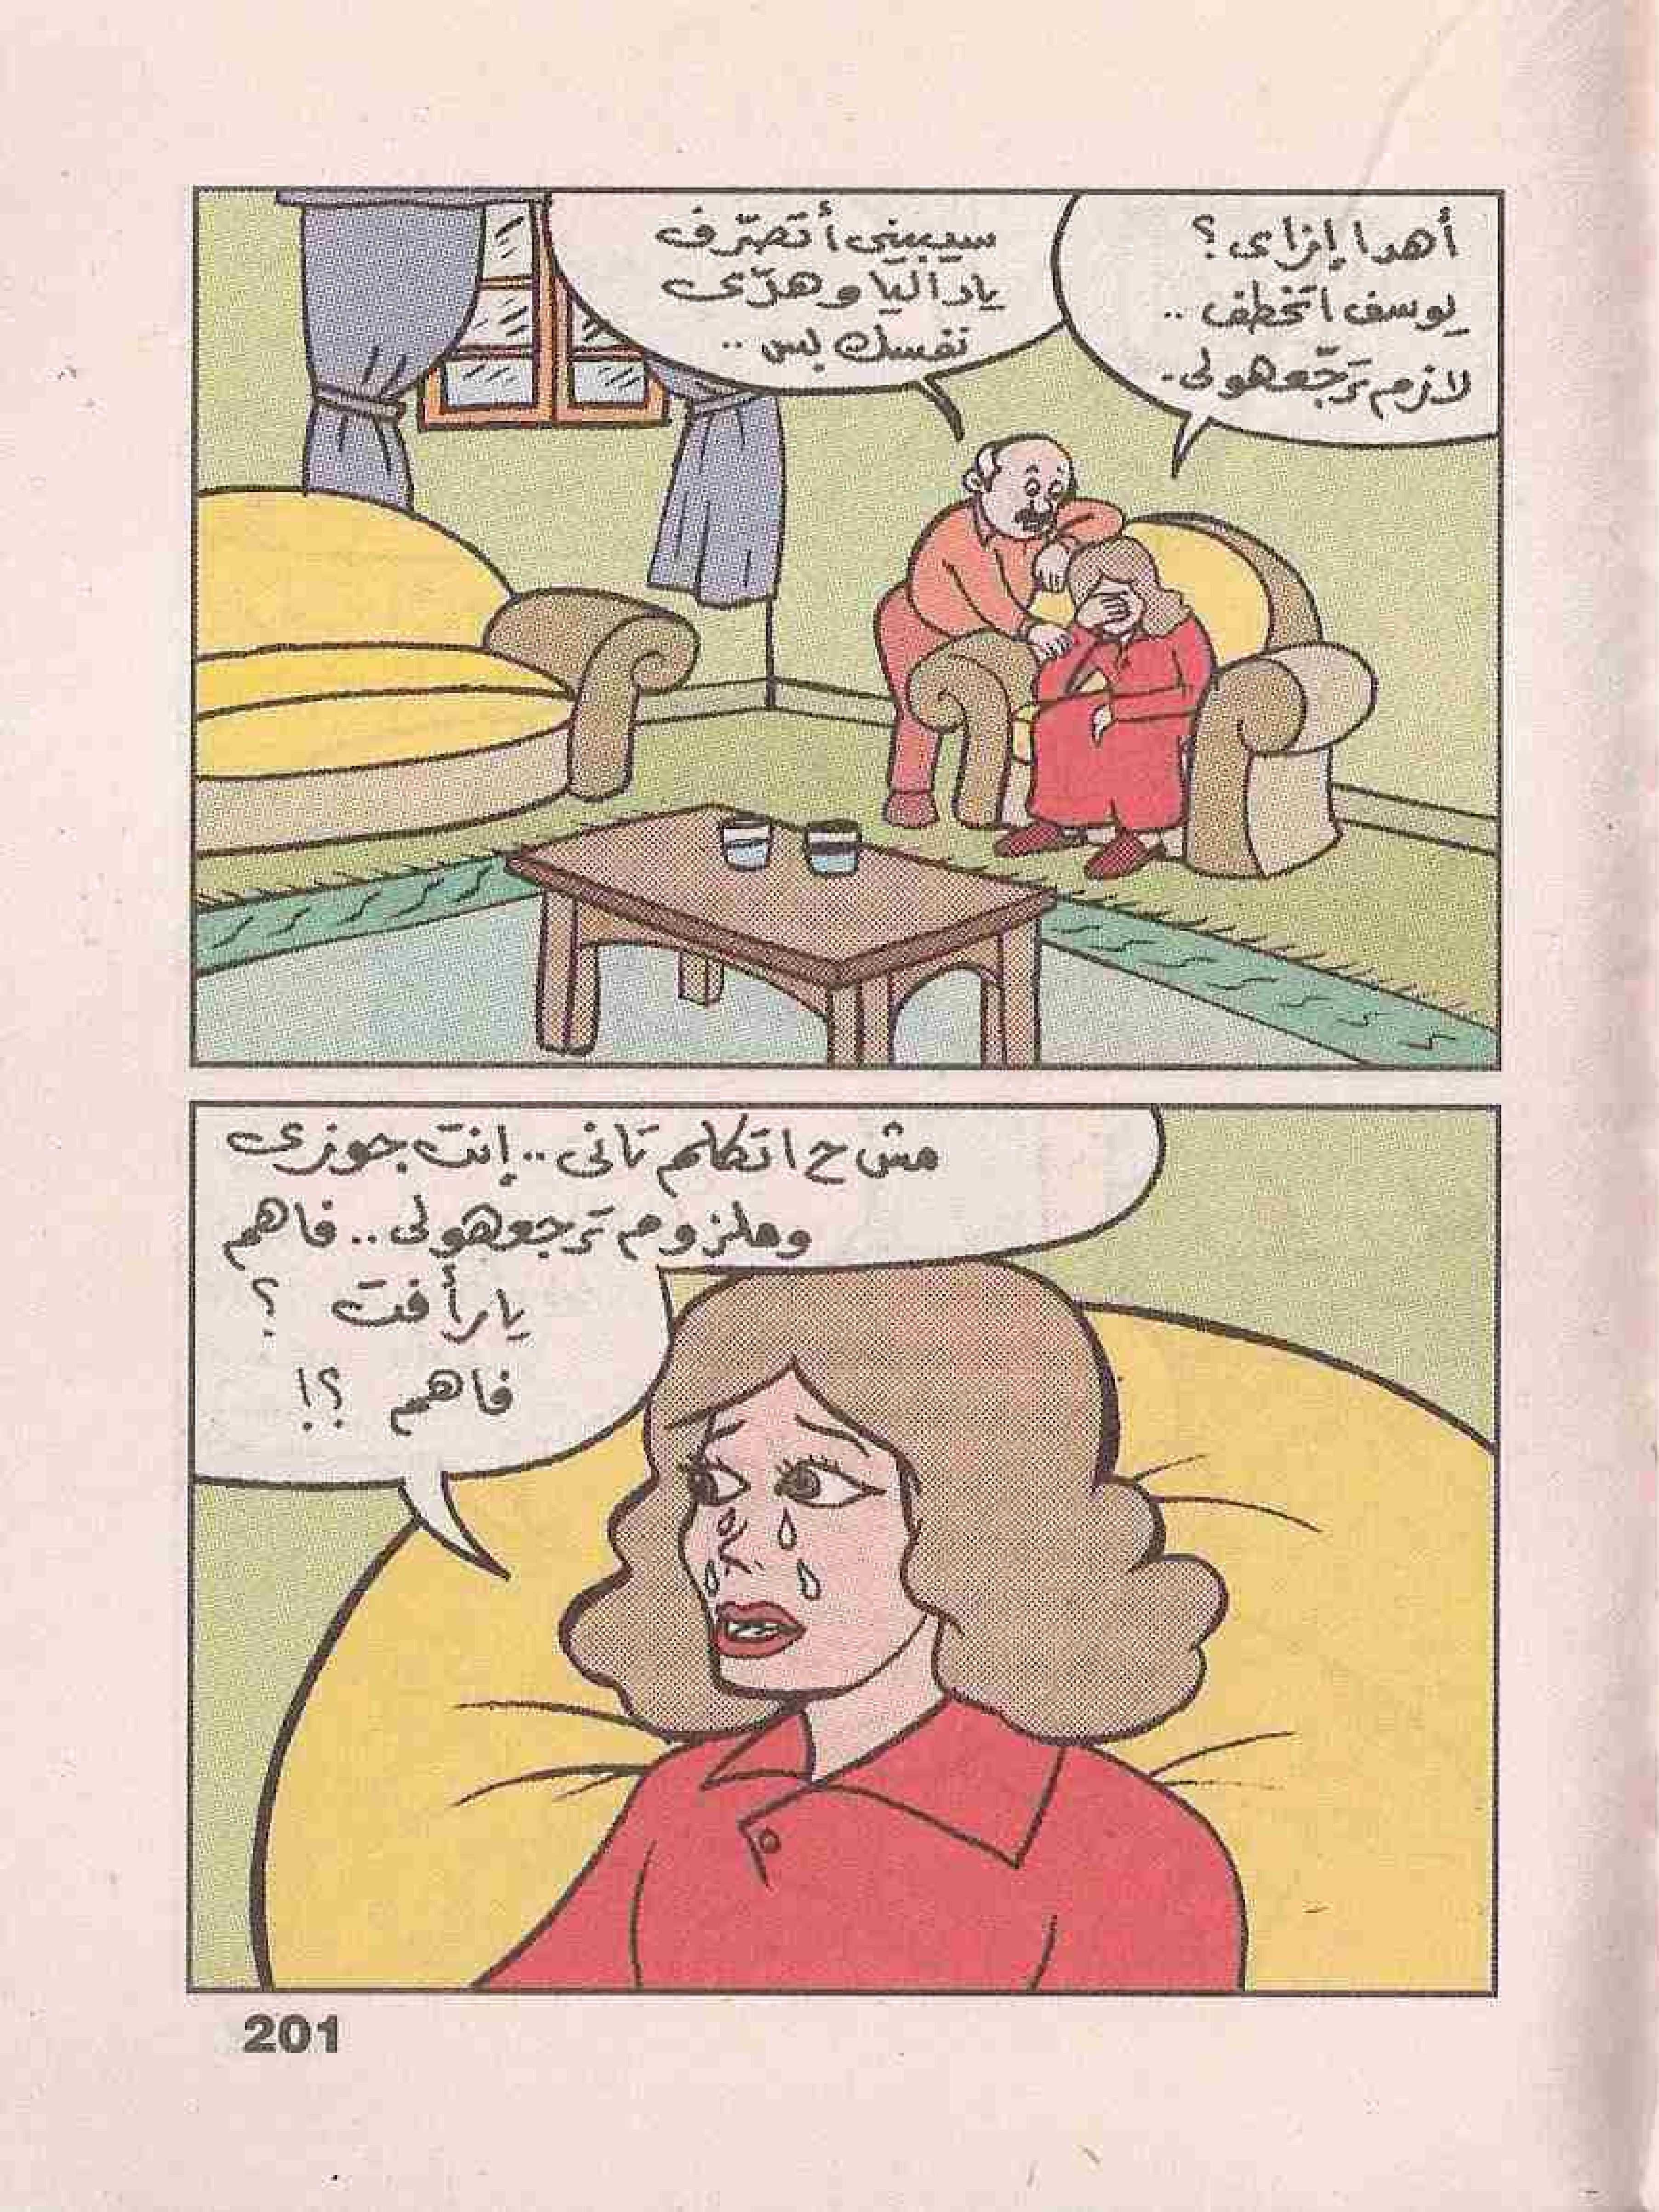 أهدا إزاى؟
يوسف اتخطف ..
لازم ترَجَّعهولى.
سيبينى أتصرّف
يا داليا وهدّى
نفسك بس ..
مش ح اتكلم تانى .. إنت جوزى
وملزوم ترَجعهولى .. فاهم
يا رأفت ؟
فاهم ؟!
201